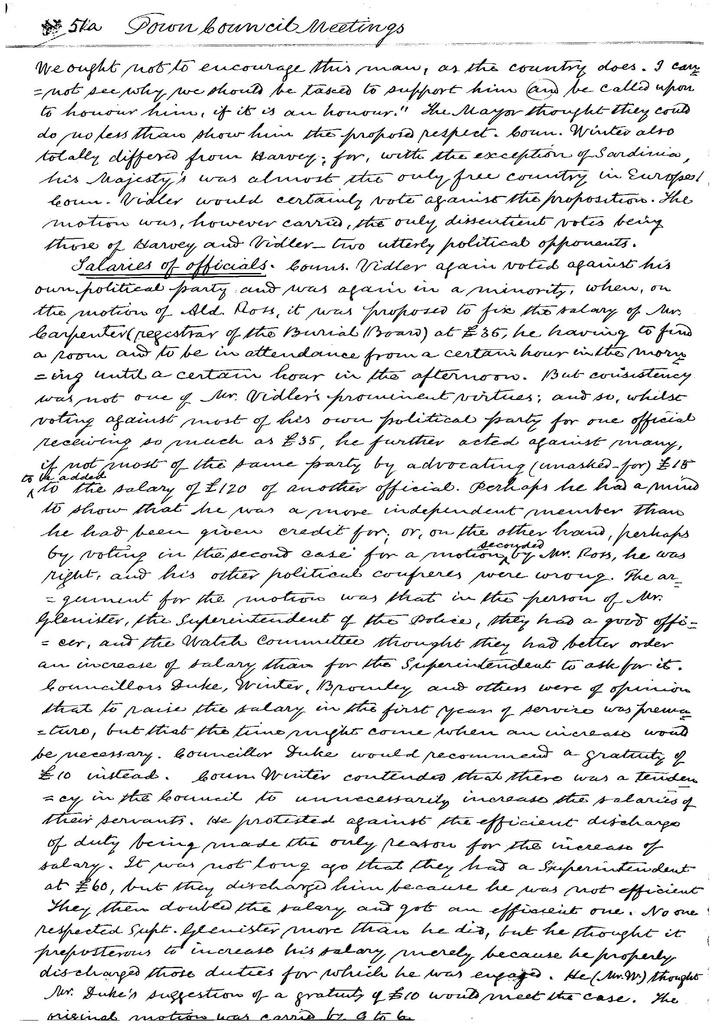 51a Town Council Meetings
We ought not to encourage this man, as the country does. I can
=not see why we should be taxed to support him (and be called upon
to honour him, if it is an honour." The Mayor thought they could
do no less than show him the proposed respect. Coun. Winter also
totally differed from Harvey; for, with the exception of Sardinia,
his Majesty's was almost the only free country in Europe!
Coun. Vidler would certainly vote against the proposition. The
motion was, however carried, the only dissentient votes being
those of Harvey and Vidler – two utterly political opponents.
Salaries of officials. Couns. Vidler again voted against his
own political party and was again in a minority, when, on
the motion of Ald. Ross, it was proposed to fix the salary of Mr.
Carpenter (registrar of the Burial Board) at £35, he having to find
a room and to be in attendance from a certain hour in the morn
=ing until a certain hour in the afternoon. But consistency
was not one of Mr. Vidler's prominent virtues; and so, whilst
voting against most of his own political party for one official
receiving so much as £35, he further acted against many,
if not most of the same party by advocating (unasked-for) £15
to be added
to the salary of £120 of another official. Perhaps he had a mind
to show that he was a more independent member than
he had been given credit for; or, on the other hand, perhaps
by voting in the second case for a motion seconded by Mr. Ross, he was
right, and his other political confreres were wrong. The ar-
=gument for the motion was that in the person of Mr.
Glenister, the Superintendent of the Police, they had a good offi-
=cer, and the Watch Committee thought they had better order
an increase of salary than for the Superintendent to ask for it.
Councillors Duke, Winter, Bromley and others were of opinion
that to raise the salary in the first year of service was prema-
=ture, but that the time might come when an increase would
be necessary. Councillor Duke would recommend a gratuity of
£10 instead. Coun Winter contended that there was a tenden
=cy in the Council to unnecessarily increase the salaries of
their servants. He protested against the efficient discharge
of duty being made the only reason for the increase of
salary. It was not long ago that they had a Superintendent
at £60, but they discharged him because he was not efficient
They then doubled the salary and got an efficient one. No one
respected Supt. Glenister more than he did, but he thought it
preposterous to increase his salary merely because he properly
discharged those duties for which he was engaged. He (Mr. W.) thought
Mr. Duke's suggestion of a gratuity of £10 would meet the case. The
original motion was carried by to 6.